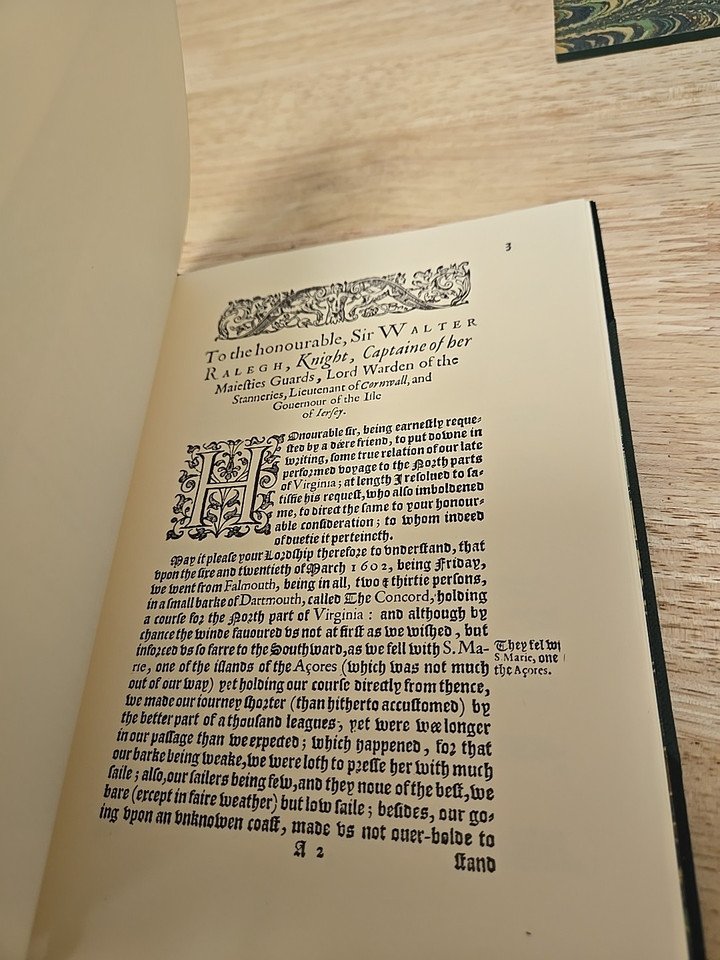 3
To the honourable, Sir WALTER
RALEGH, Knight, Captaine of her
Maieſties Guards, Lord Warden of the
Stanneries, Lieutenant of Cornwall, and
Gouernour of the Iſle
of Ierſey.
HOnourable ſir, being earneſtly reque-
ſted by a deere friend, to put downe in
writing, ſome true relation of our late
performed voyage to the North parts
of Virginia; at length I reſolued to ſa-
tiſfie his requeſt, who alſo imboldened
me, to direct the ſame to your honour-
able conſideration; to whom indeed
of duetie it perteineth.
May it pleaſe your Lordſhip therefore to vnderſtand, that
vpon the ſixe and twentieth of March 1602, being Friday,
we went from Falmouth, being in all, two & thirtie perſons,
in a ſmall barke of Dartmouth, called The Concord, holding
a courſe for the North part of Virginia: and although by
chance the winde fauoured vs not at firſt as we wiſhed, but
inforced vs ſo farre to the Southward, as we fell with S. Ma-
rie, one of the iſlands of the Açores (which was not much
out of our way) yet holding our courſe directly from thence,
we made our iourney ſhorter (than hitherto accuſtomed) by
the better part of a thouſand leagues, yet were wee longer
in our paſſage than we expected; which happened, for that
our barke being weake, we were loth to preſſe her with much
ſaile; alſo, our ſailers being few, and they none of the beſt, we
bare (except in faire weather) but low ſaile; beſides, our go-
ing vpon an vnknowen coaſt, made vs not ouer-bolde to
A 2
ſtand
They fel
S. Marie, one
the Açores.